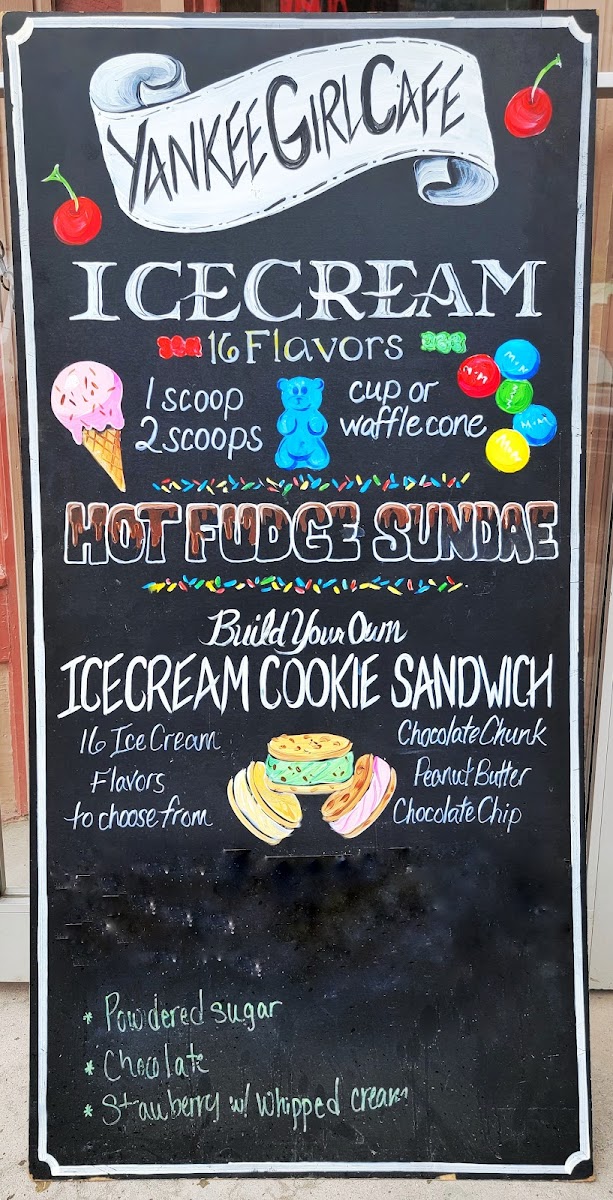 YANKEE GIRL CAFE
ICECREAM
16 Flavors
1 scoop
2 scoops
cup or
waffle cone
M&M
M&M
M&M
M&M
HOT FUDGE SUNDAE
Build Your Own
ICECREAM COOKIE SANDWICH
16 Ice Cream
Flavors
to choose from
Chocolate Chunk
Peanut Butter
Chocolate Chip
* Powdered sugar
* Chocolate
* Strawberry w/ whipped cream